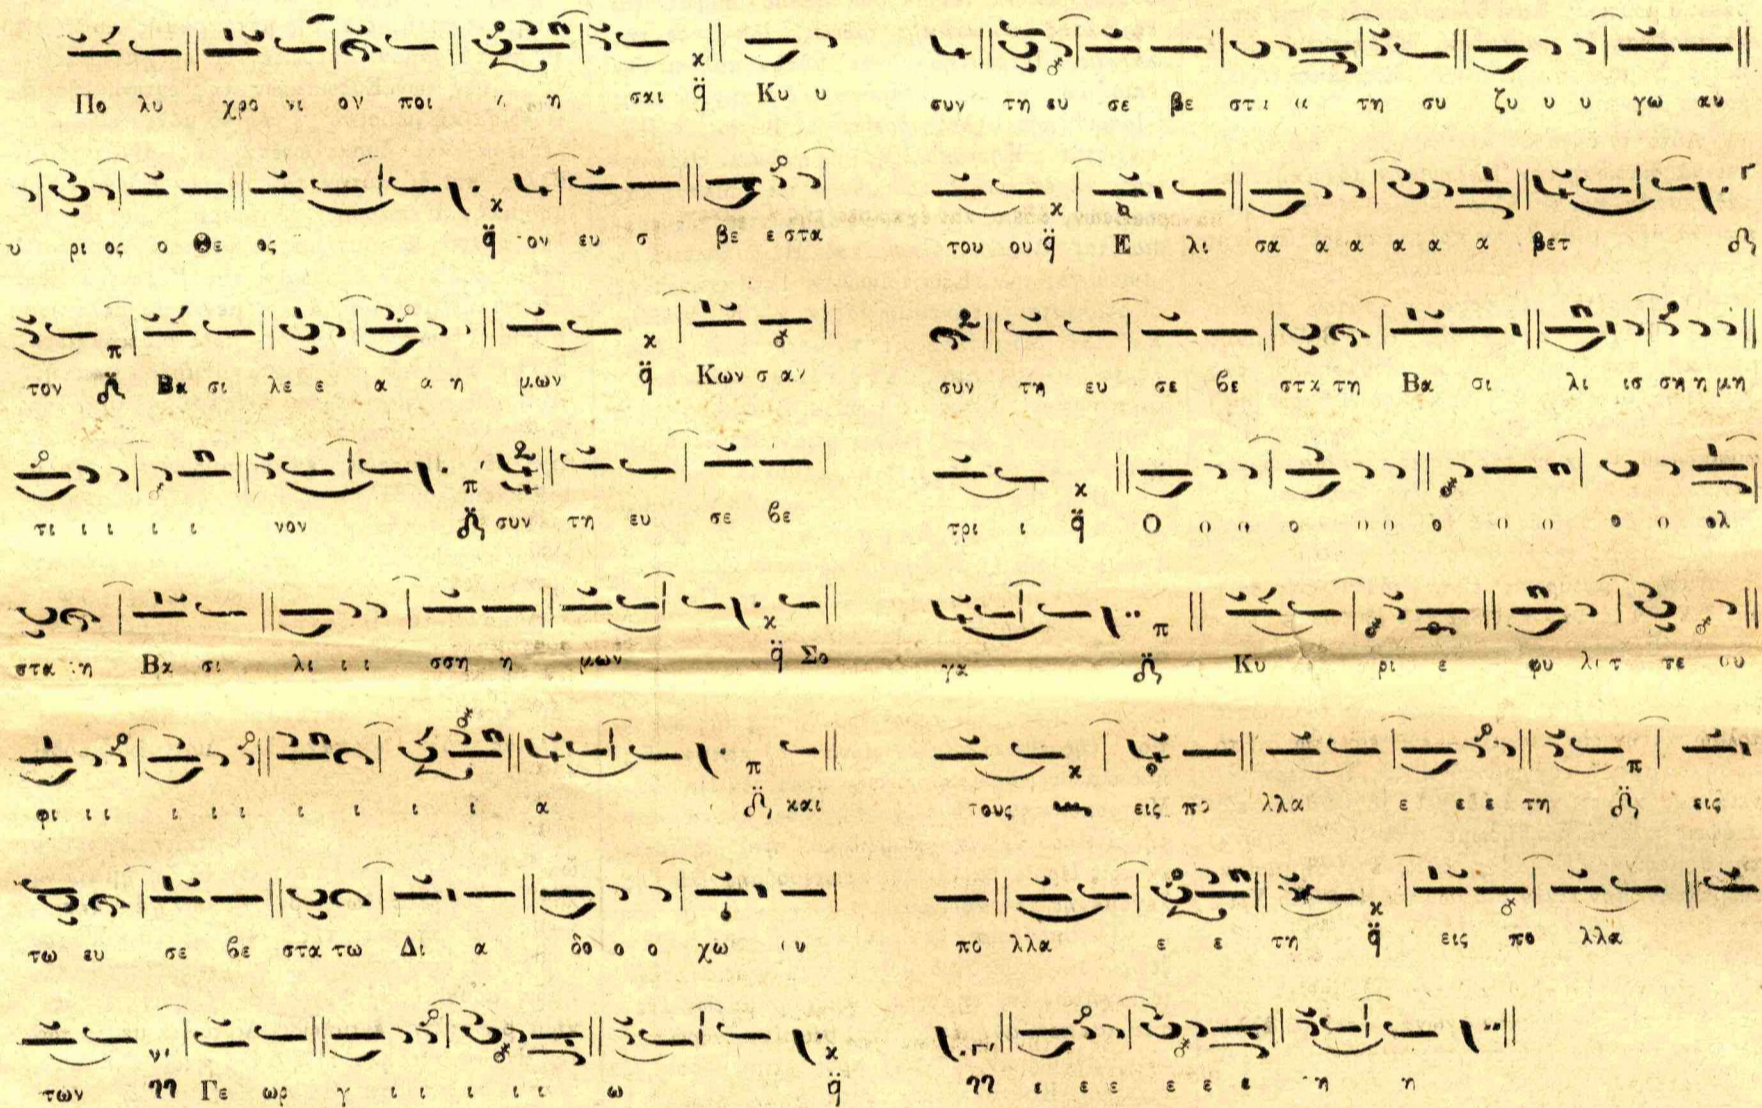 Πο λυ χρο νι ον ποι η σαι Κυ υ
υ ρι ος ο Θε ος ον ευ σ βε ε στα
τον Βα σι λε ε α α η μων Κων σ αν
τι ι ι ι ι νον συν τη ευ σε βε
στα τη Βα σι λι ι ι σση η μων Σο
φι ι ι ι ι ι ι ι ι ι α και
τω ευ σε βε στα τω Δι α δο ο ο χω υ
των Γε ωρ γ ι ι ι ι ι ω
συν τη ευ σε βε στα α τη συ ζυ υ υ γω αυ
του ου Ε λι σα α α α α α βετ
συν τη ευ σε βε στα τη Βα σι λι ισ ση η μη
τρι ι Ο ο ο ο ο ο ο ο ο ο ο ολ
γα Κυ ρι ε φυ λατ τε ου
τους εις πο λλα ε ε ε τη εις
πο λλα ε ε τη εις πο λλα
ι ε ε ε ε ε η η